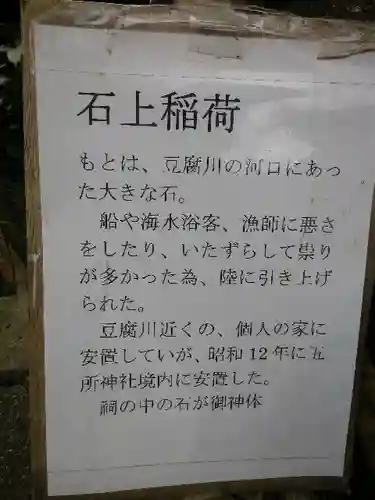 石上稲荷
もとは、豆腐川の河口にあっ
た大きな石。
船や海水浴客、漁師に悪さ
をしたり、いたずらして祟り
が多かった為、陸に引き上げ
られた。
豆腐川近くの、個人の家に
安置していが、昭和12年に五
所神社境内に安置した。
祠の中の石が御神体